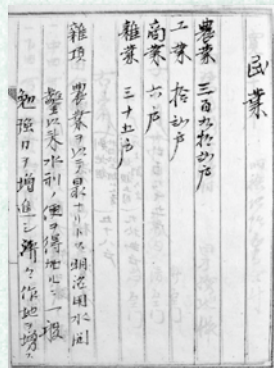 民業
農業 三百九拾弐戸
工業 拾弐戸
商業 六戸
雑業 三十五戸
雑項 農業ヲ以テ最トナリトス明治用水開
鑿以来水利ノ便ヲ得タルヨリ一般
勉強日ヲ増進シ漸々作地ヲ増ス